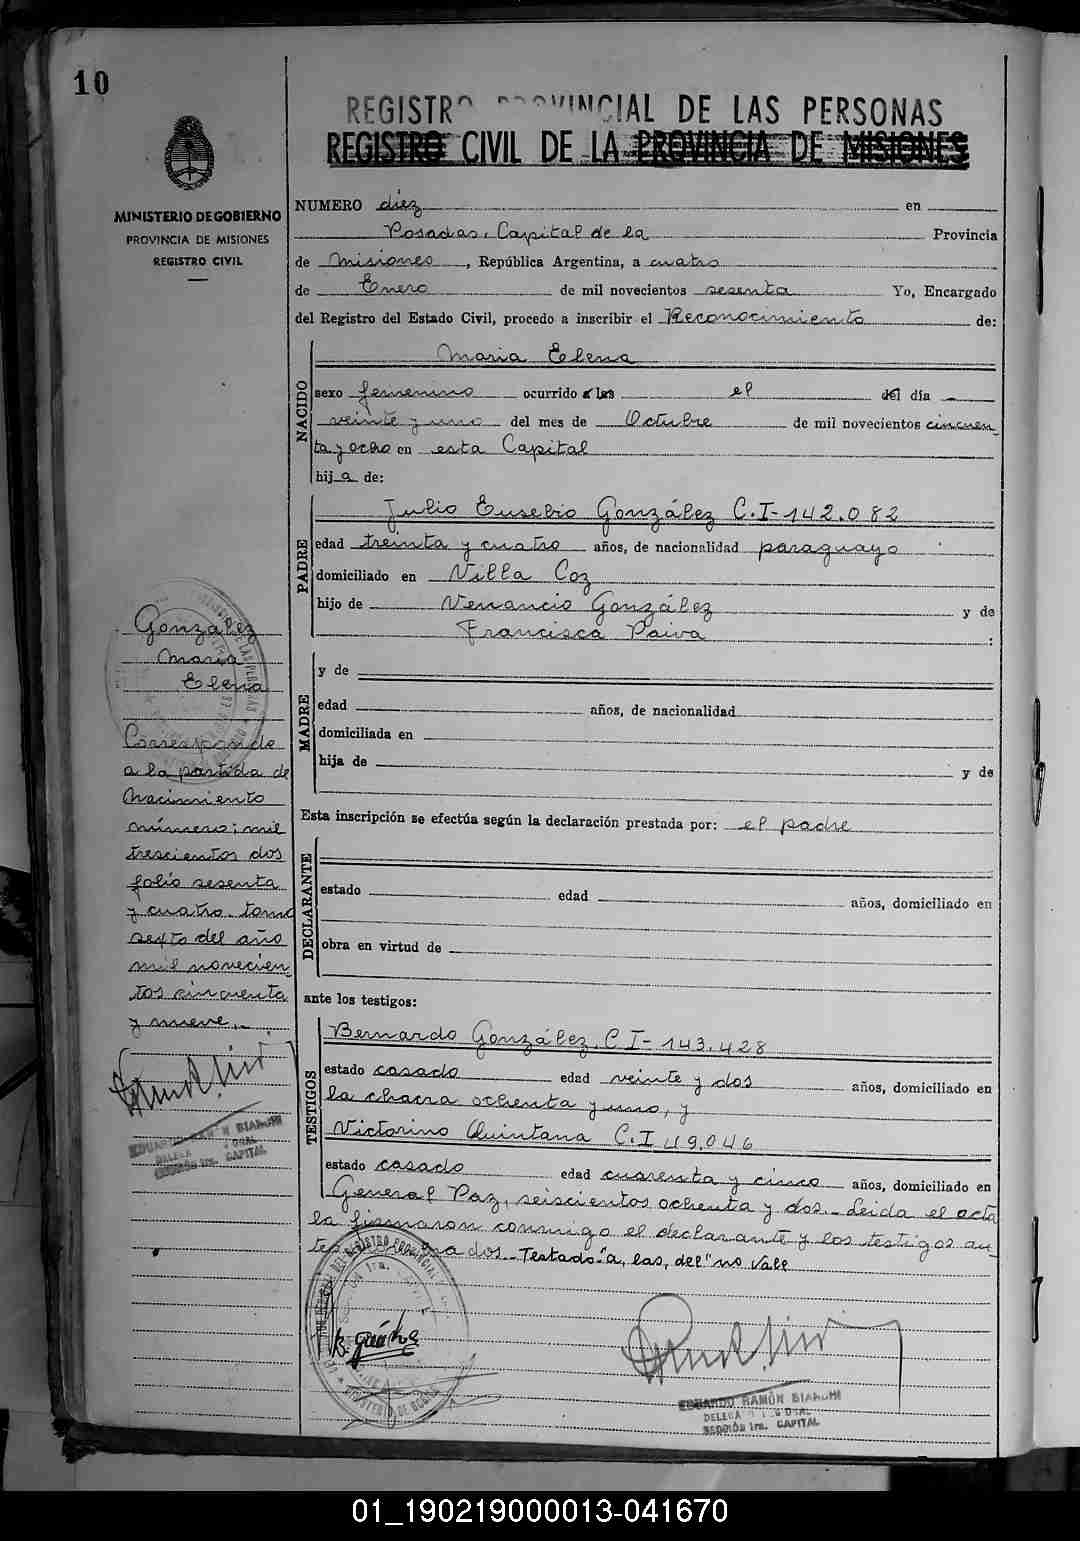 10
REGISTRO PROVINCIAL DE LAS PERSONAS
REGISTRO CIVIL DE LA PROVINCIA DE MISIONES
MINISTERIO DE GOBIERNO
PROVINCIA DE MISIONES
REGISTRO CIVIL
NUMERO diez en
Posadas, Capital de la Provincia
de Misiones, República Argentina, a cuatro
de Enero de mil novecientos sesenta Yo, Encargado
del Registro del Estado Civil, procedo a inscribir el Reconocimiento de:
NACIDO
Maria Elena
sexo femenino ocurrido a las el del día
veinte y uno del mes de Octubre de mil novecientos cincuen
ta y ocho en esta Capital
hija de:
PADRE
Julio Eusebio González C.I-142.082
edad treinta y cuatro años, de nacionalidad paraguayo
domiciliado en Villa Coz
hijo de Venancio González y de
Francisca Paiva :
MADRE
y de
edad años, de nacionalidad
domiciliada en
hija de y de
Esta inscripción se efectúa según la declaración prestada por: el padre
DECLARANTE
estado edad años, domiciliado en
obra en virtud de
ante los testigos:
TESTIGOS
Bernardo González, C I-143.428
estado casado edad veinte y dos años, domiciliado en
la chacra ochenta y uno, y
Victorino Quintana C.I 49.046
estado casado edad cuarenta y cinco años, domiciliado en
General Paz, seiscientos ochenta y dos. Leida el acta
la firmaron conmigo el declarante y los testigos an
tes dos. Testado "a, las, del" no vale
González
Maria
Elena
Corresponde
a la partida de
Nacimiento
número: mil
trescientos dos
folio sesenta
y cuatro tomo
sexto del año
mil novecien
tos cincuenta
y nueve.
EDUARDO RAMÓN BIANCHI
SECCIÓN 1ra. CAPITAL
EDUARDO RAMÓN BIANCHI
SECCIÓN 1ra. CAPITAL
01_190219000013-041670